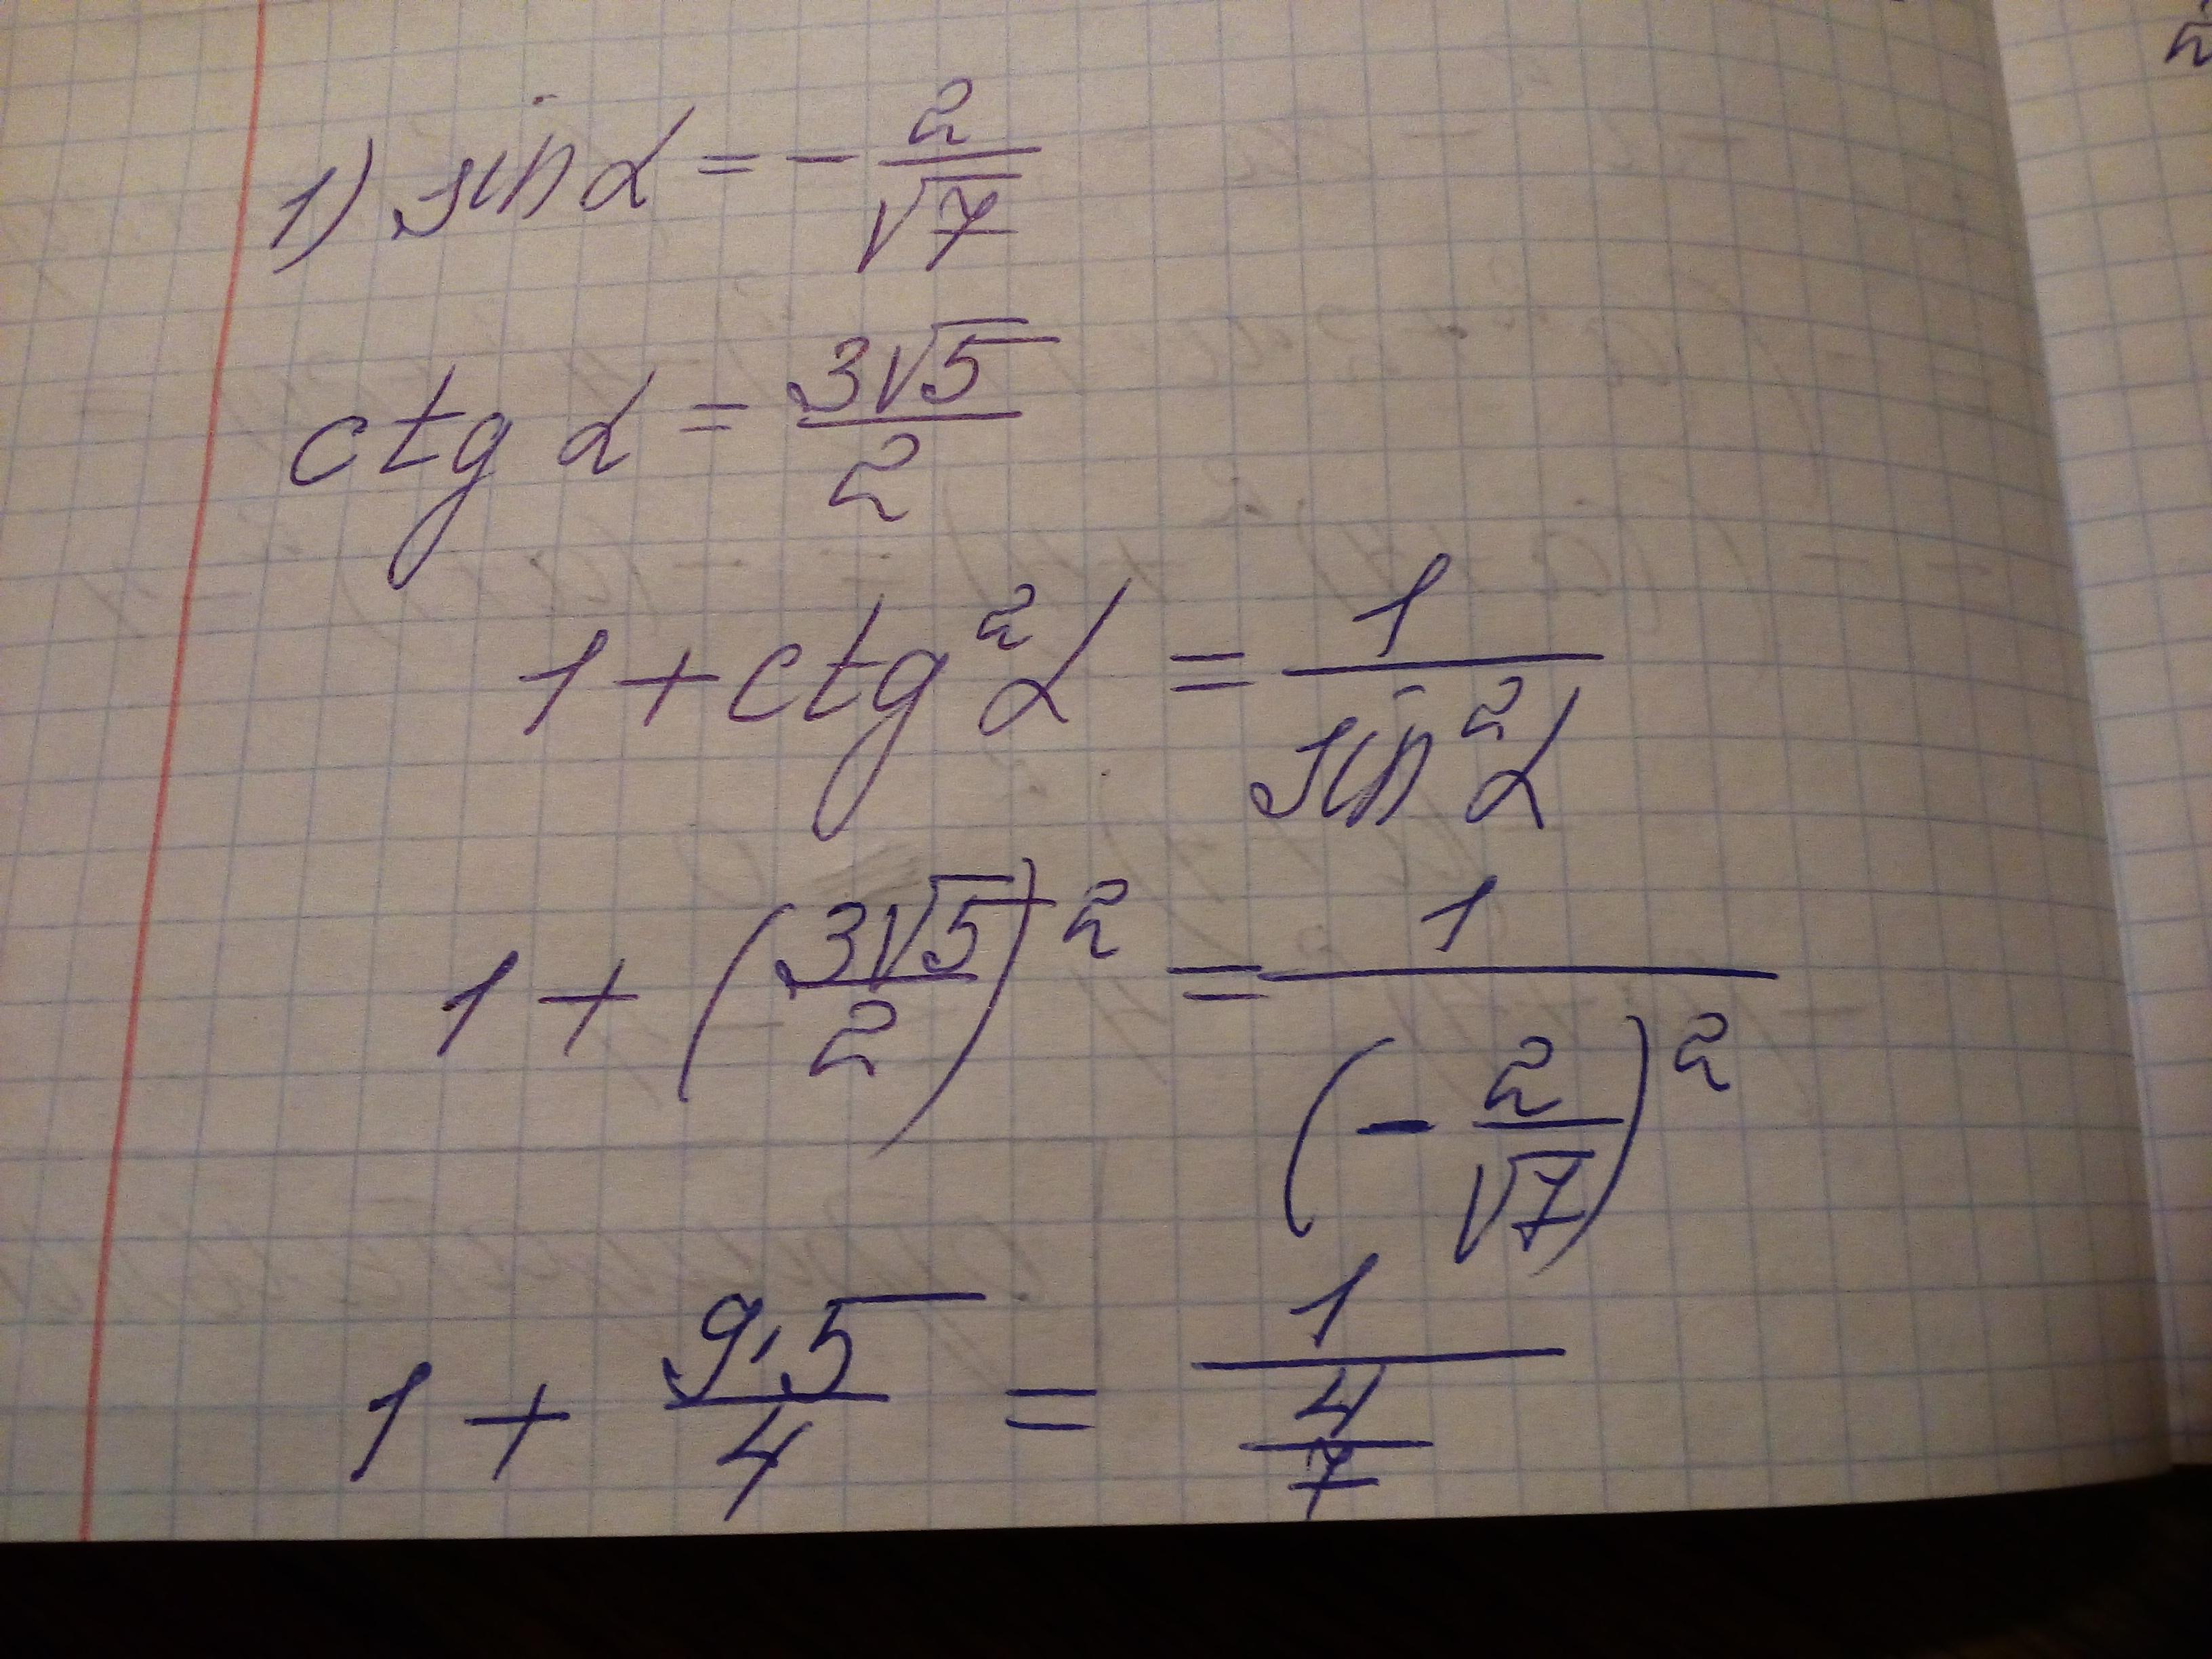 1) sin α = - 2/√7
ctg α = 3√5/2
1 + ctg²α = 1/sin²α
1 + (3√5/2)² = 1/(-2/√7)²
1 + 9·5/4 = 1/(4/7)